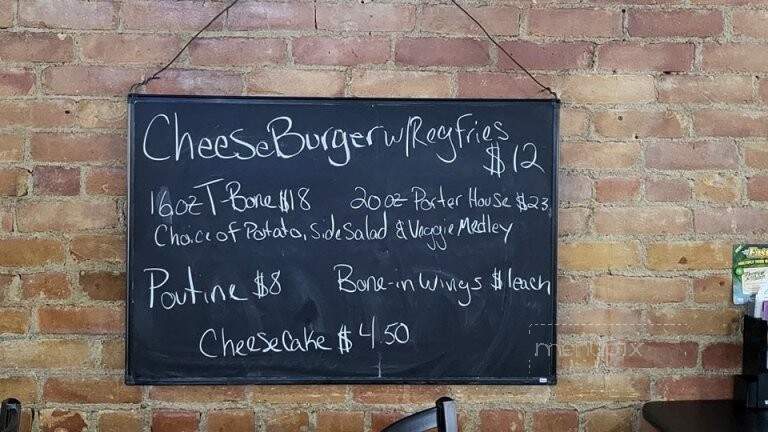 CheeseBurger w/Reg fries
$12
16oz T-Bone $18 20oz Porter House $23
Choice of Potato, Side Salad & Veggie Medley
Poutine $8 Bone-in Wings $1each
CheeseCake $4.50
menupix